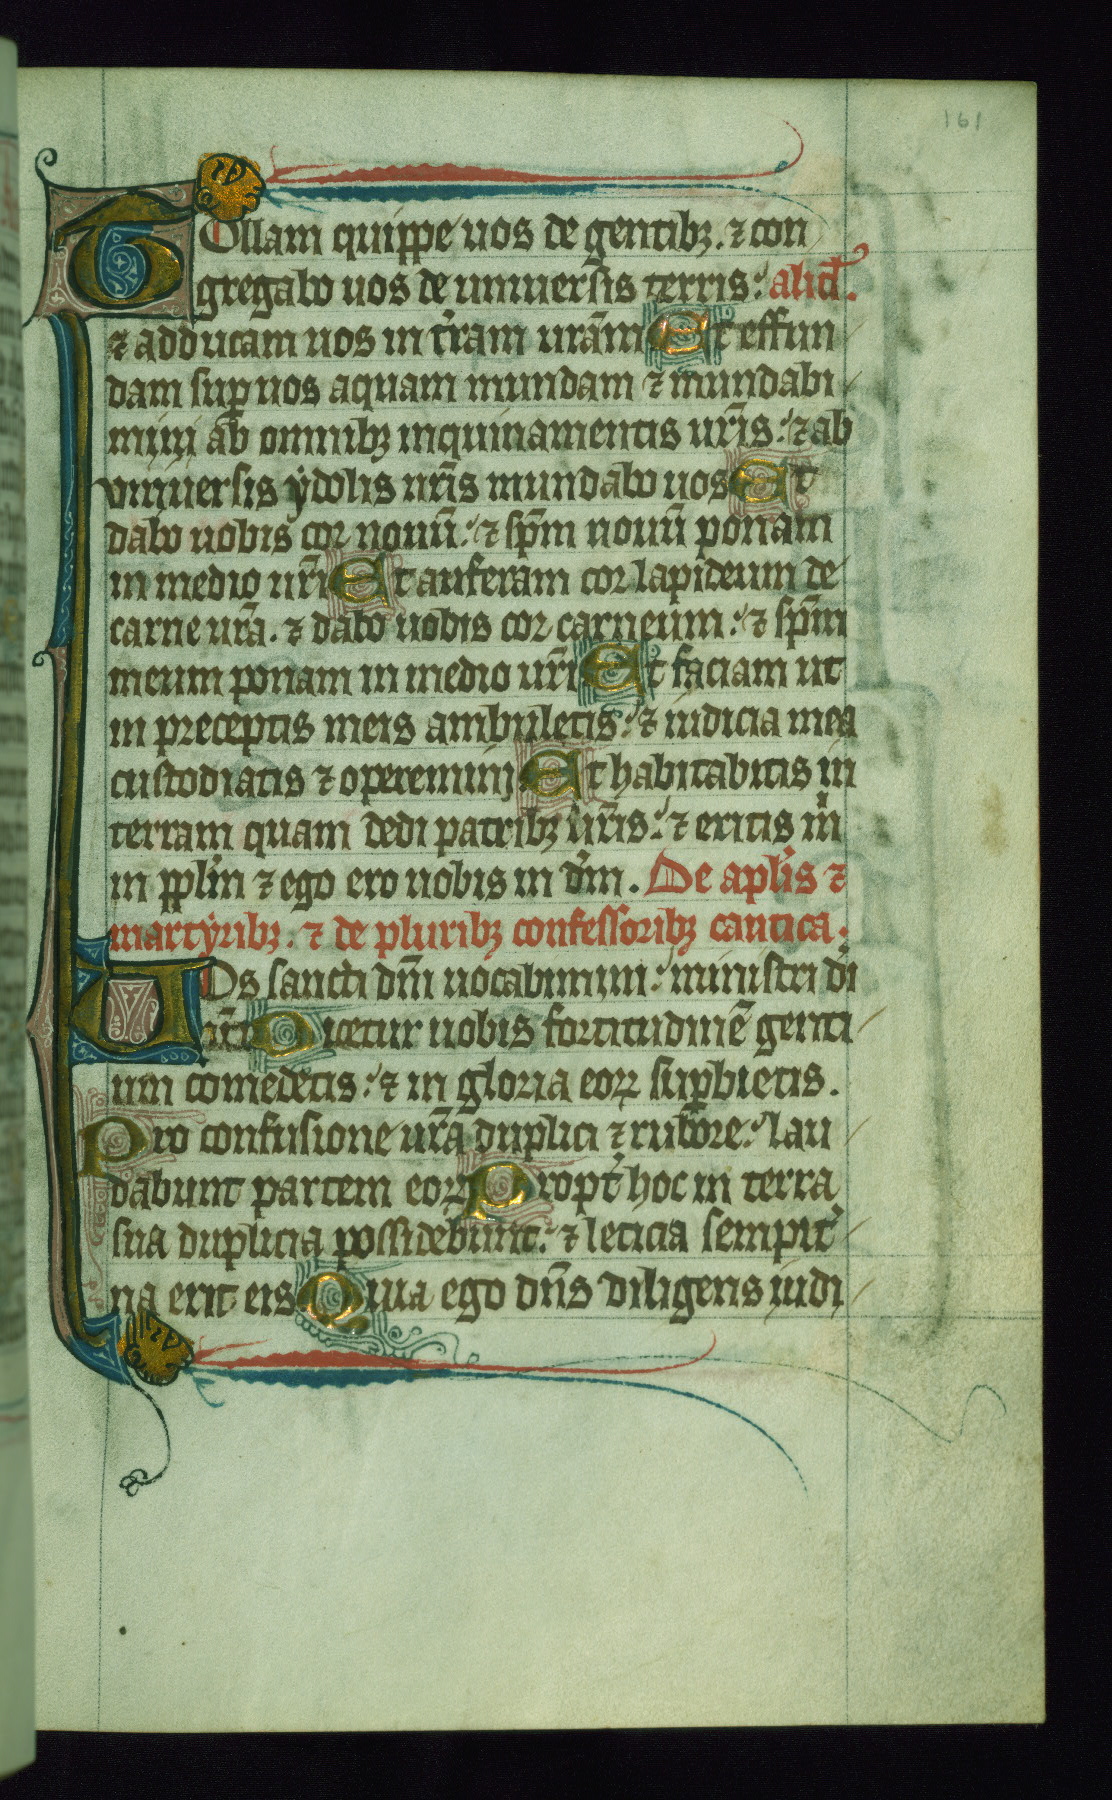 161
Tollam quippe uos de gentibꝫ. ⁊ con
gregabo uos de uniuersis terris: alid̾.
⁊ adducam uos in t̾ram ur̄am Et effun
dam suꝑ uos aquam mundam ⁊ mundabi
mini ab omnibꝫ inquinamentis ur̄is: ⁊ ab
vniuersis ẏdolis ur̄is mundabo uos Et
dabo uobis cor nouū: ⁊ sp̄m nouū ponam
in medio ur̄i Et auferam cor lapideum de
carne ur̄a. ⁊ dabo uobis cor carneum: ⁊ sp̄m
meum ponam in medio ur̄i Et faciam ut
in preceptis meis ambuletis: ⁊ iudicia mea
custodiatis ⁊ operemini Et habitabitis in
terram quam dedi patribꝫ ur̄is: ⁊ eritis m̾i
in ppl̄m ⁊ ego ero uobis in d̾m. De apl̄is ⁊
martẏribꝫ. ⁊ de pluribꝫ confessoribꝫ cantica.
Vos sancti dn̄i uocabimini: ministri d̾i
nr̄i Dicetur uobis fortitudinē genti
um comedetis: ⁊ in gloria eoꝝ suꝑbietis.
Pro confusione ur̄a duplici ⁊ rubore: lau
dabunt partem eoꝝ Propt̾ hoc in terra
sua duplicia possidebunt: ⁊ leticia sempit̾
na erit eis Quia ego dn̄s diligens iudi